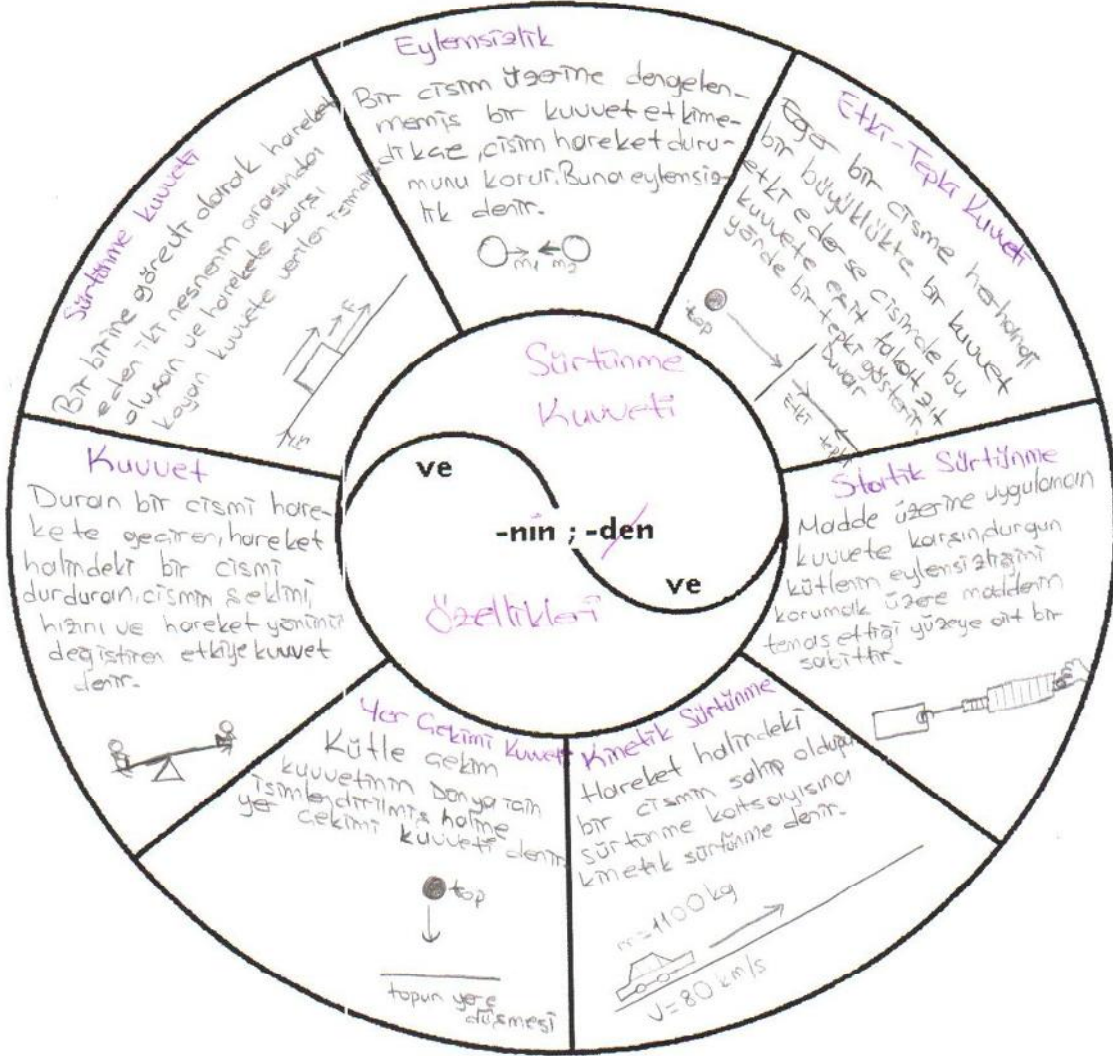 Eylemsizlik
Bir cisim üzerine dengelen-
memiş bir kuvvet etkime-
dikçe, cisim hareket duru-
munu korur. Buna eylemsiz-
lik denir.
m1 m2
Etki-Tepki Kuvveti
Eğer bir cisme herhangi
bir büyüklükte bir kuvvet
etki ederse cisimde bu
kuvvete eşit fakat zıt
yönde bir tepki gösterir.
top
Duvar
Etki
tepki
Statik Sürtünme
Madde üzerine uygulanan
kuvvete karşın, durgun
kütlenin eylemsizliğini
korumak üzere maddenin
temas ettiği yüzeye ait bir
sabittir.
Kinetik Sürtünme
Hareket halindeki
bir cismin sahip olduğu
sürtünme katsayısına
kinetik sürtünme denir.
m=1100 kg
V=80 km/s
Yer Çekimi Kuvveti
Kütle çekim
kuvvetinin Dünya için
isimlendirilmiş haline
yer çekimi kuvveti denir.
top
topun yere
düşmesi
Kuvvet
Duran bir cismi hare-
kete geçiren, hareket
halindeki bir cismi
durduran, cismin şeklini,
hızını ve hareket yönünü
değiştiren etkiye kuvvet
denir.
Sürtünme kuvveti
Bir birine göreceli olarak hareket
eden iki nesnenin arasından
oluşan ve harekete karşı
koyan kuvvete verilen isimdir.
F
Sürtünme
Kuvveti
ve
-nin ; -den
ve
Özellikleri